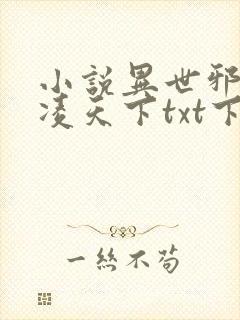 小說異世邪
凌天下txt下
一丝不苟